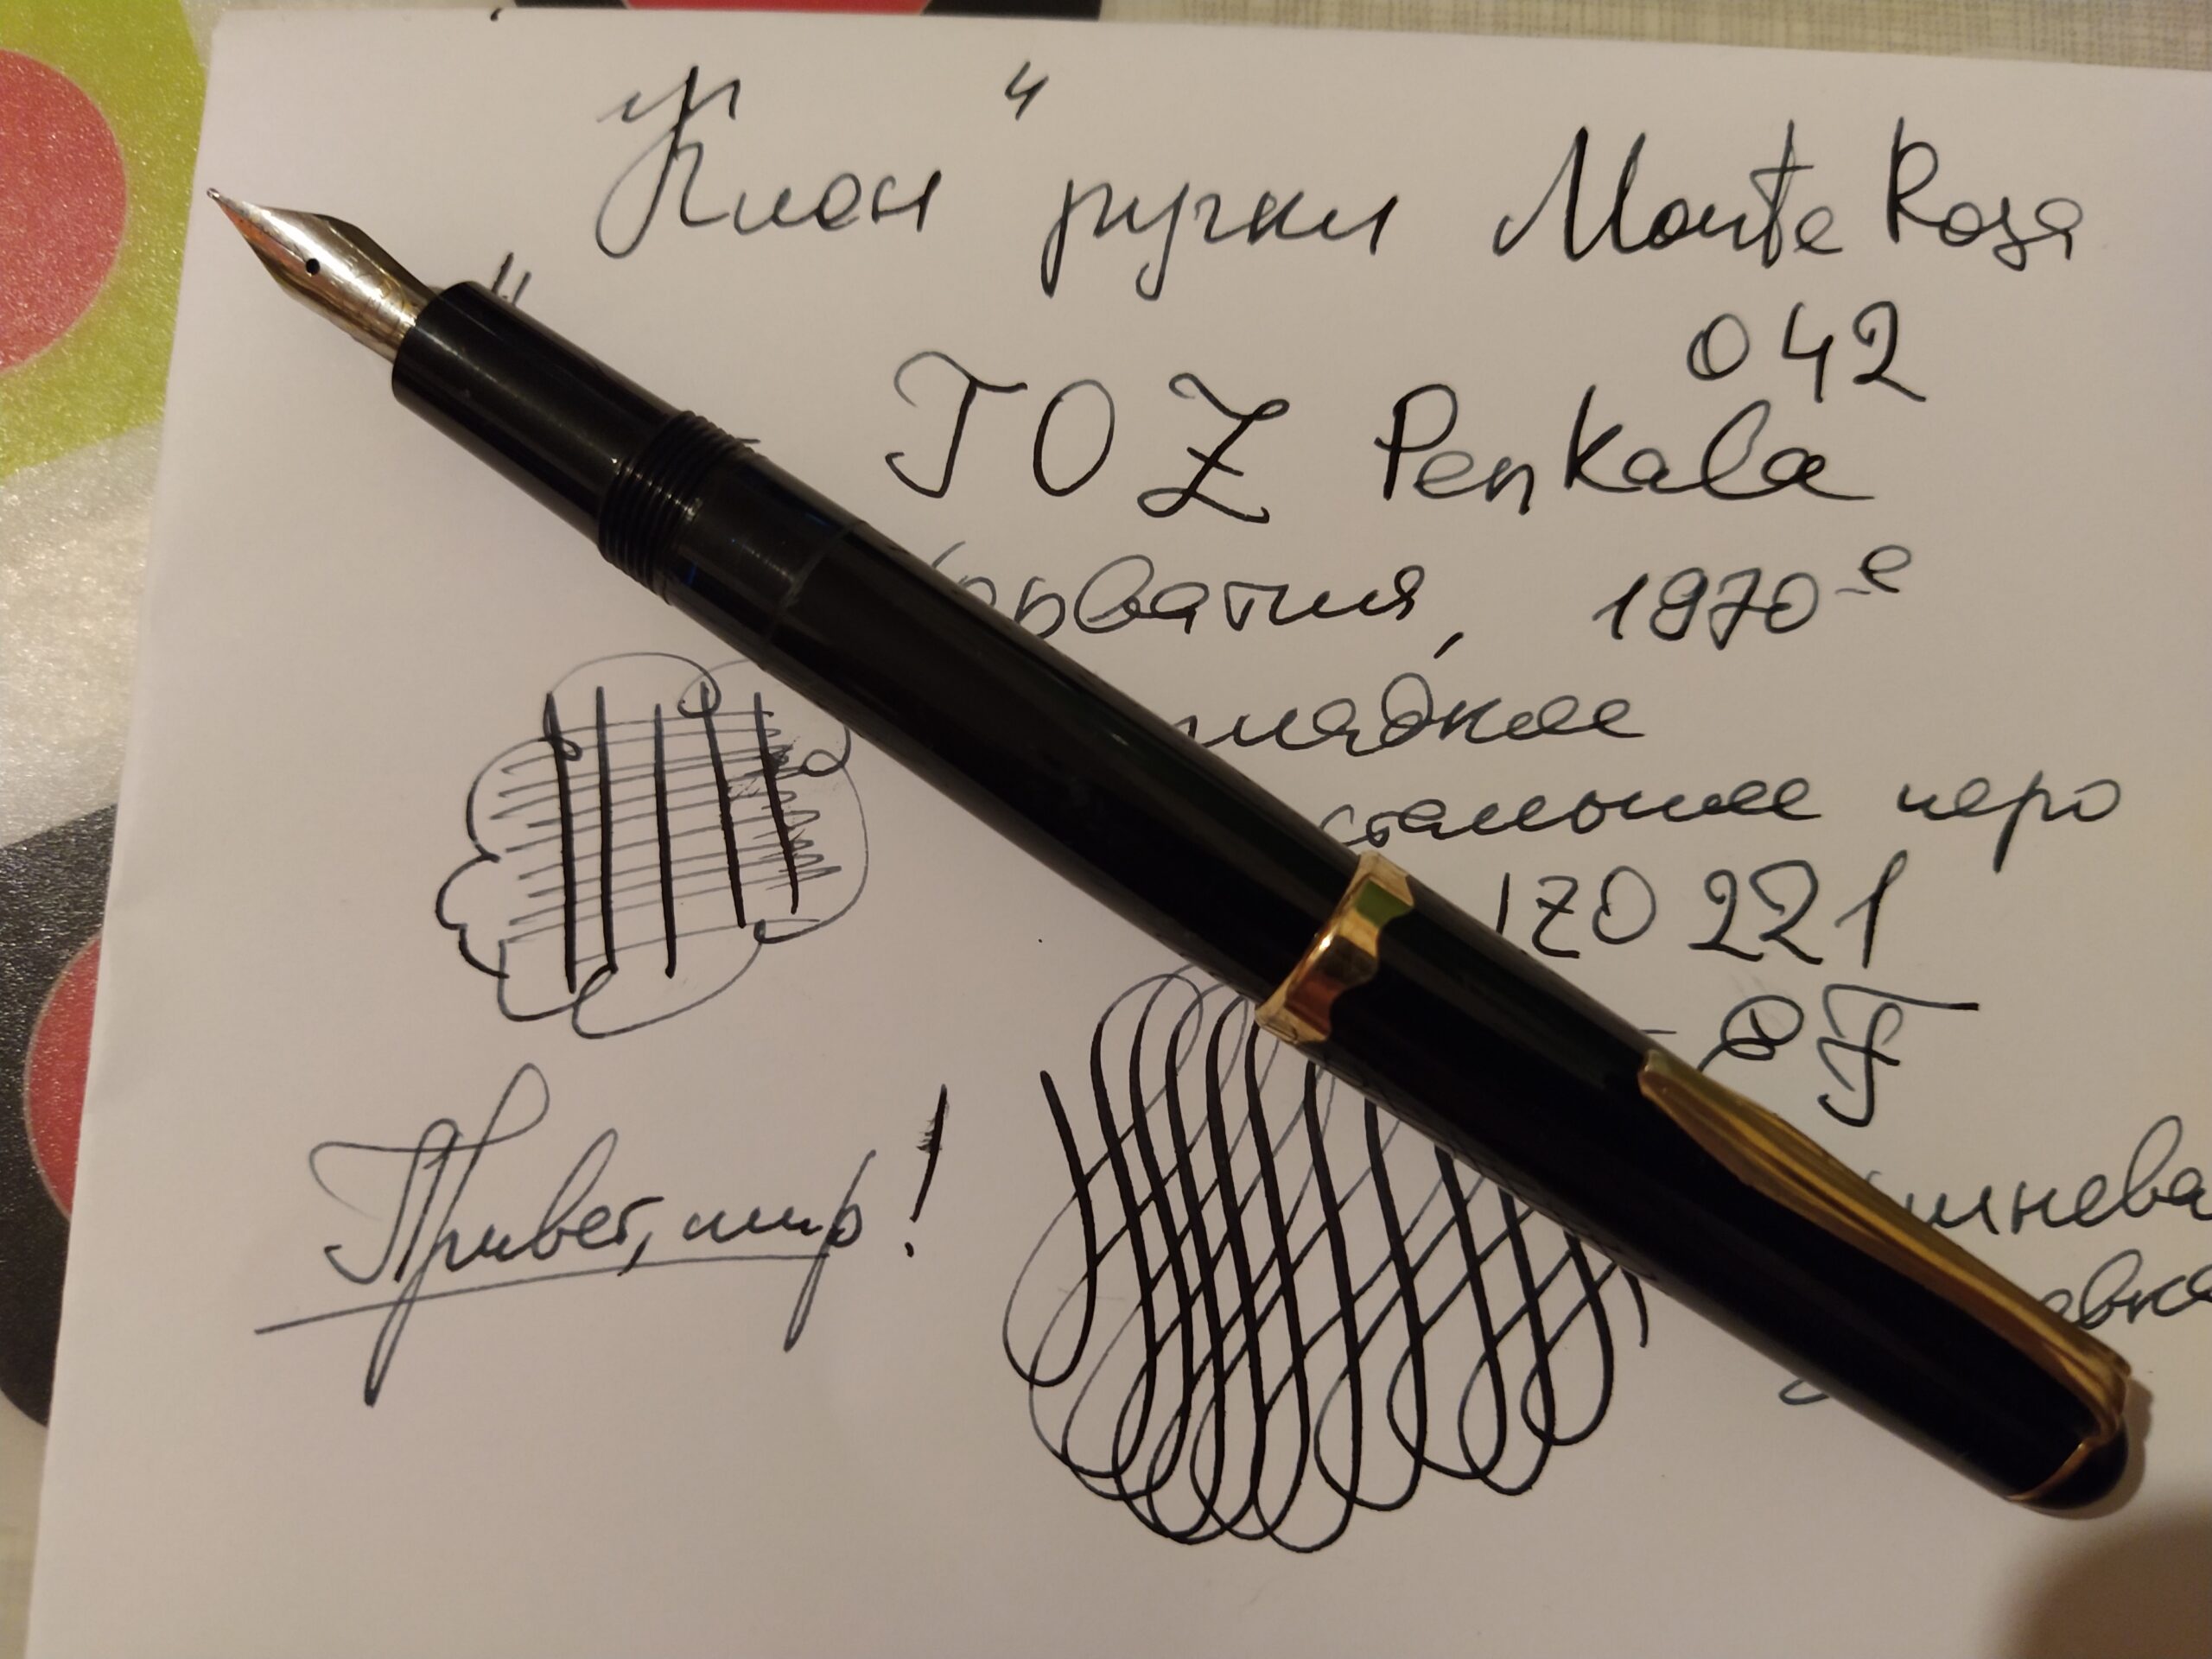 "Клон" ручки Monte Rosa
042
TOZ Penkala
Хорватия, 1970-е
гладкое
стальное перо
IZO 221
EF
Привет, мир!